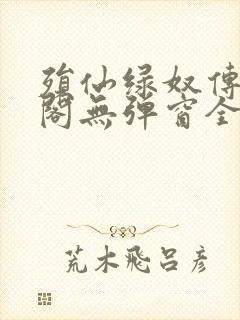 殞仙绿奴傳
閣無彈窗全
荒木飛呂彦